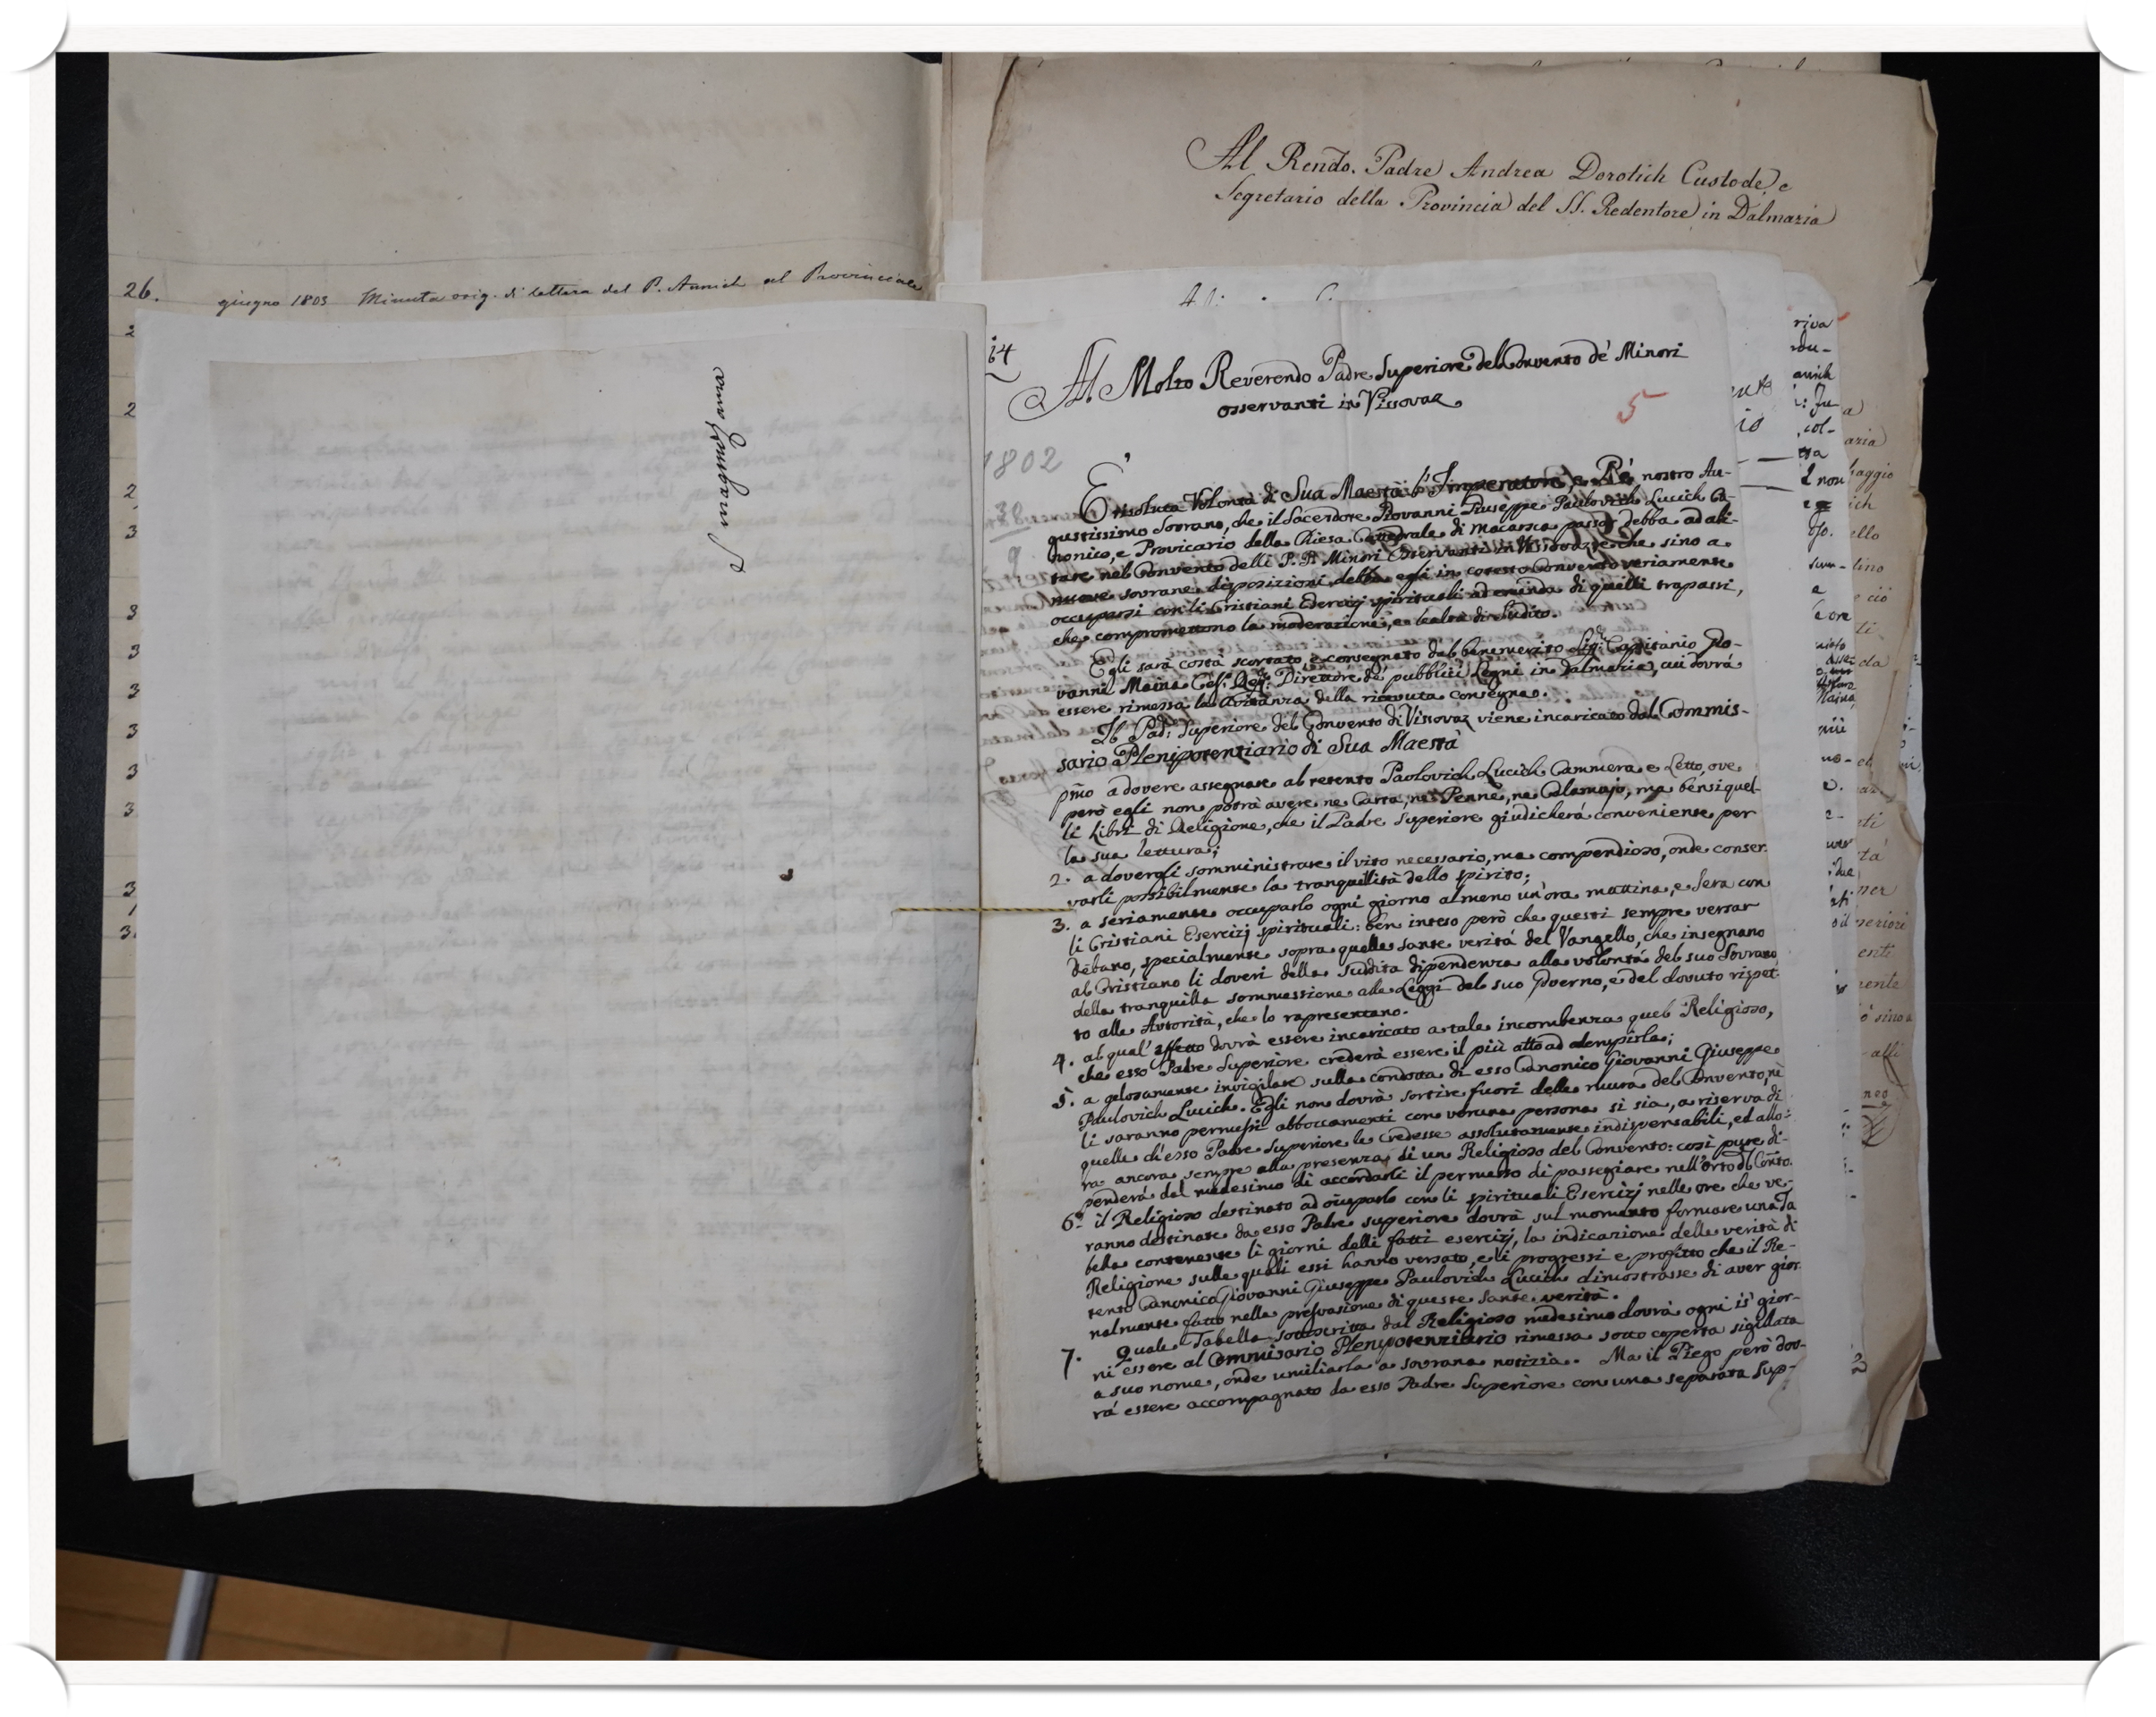 Al Rendo. Padre Andrea Dorotich Custode, e
Segretario della Provincia del SS. Redentore in Dalmazia
26. giugno 1803 Minuta orig. di lettera del P. Annich al Provinciale
S magmezana
14
Al Molto Reverendo Padre Superiore del Convento de' Minori
osservanti in Vissovaz
5
1802
È risoluta Volontà di Sua Maestà l'Imperatore, e Rè nostro Au-
gustissimo Sovrano, che il Sacerdote Giovanni Giuseppe Paulovich Lucich Ca-
nonico, e Provicario della Chiesa Cattedrale di Macarsca passar debba ad abi-
tare nel Convento delli P. P. Minori Osservanti in Vissovaz e che sino a
nuove sovrane disposizioni debba egli in cotesto Convento seriamente
occuparsi con li Cristiani Esercizj spirituali ad emenda di quelli trapassi,
che compromettono la moderazione, e lealtà di Suddito.
Egli sarà costà scortato, e consegnato dal benemerito Sigr. Capitanio Gio-
vanni Maina Ces. Reg. Direttore de' pubblici Legni in Dalmazia, cui dovrà
essere rimessa la quitanza della ricevuta consegna.
Il Pad: Superiore del Convento di Vissovaz viene incaricato dal Commis-
sario Plenipotenziario di Sua Maestà
pmo a dovere assegnare al retento Paolovich Lucich Cammera e Letto, ove
però egli non potrà avere ne Carta, ne Penne, ne Calamajo, ma bensi quel-
li Libri di Religione, che il Padre Superiore giudicherà conveniente per
la sua lettura;
2. a dovergli somministrare il vito necessario, ma compendioso, onde conser-
varli possibilmente la tranquillità dello spirito;
3. a seriamente occuparlo ogni giorno almeno un'ora mattina, e sera con
li Cristiani Esercizj spirituali: ben inteso però che questi sempre versar
debano, specialmente sopra quelle sante verità del Vangello, che insegnano
al Cristiano li doveri della suddita dipendenza alla volontà del suo Sovrano,
della tranquilla sommessione alle Leggi del suo Governo, e del dovuto rispet-
to alle Autorità, che lo rapresentano.
4. al qual' effetto dovrà essere incaricato a tale incombenza quel Religioso,
che esso Padre Superiore crederà essere il più atto ad adempirla;
5. a gelosamente invigilare sulla condotta di esso Canonico Giovanni Giuseppe
Paulovich Lucich. Egli non dovrà sortire fuori delle mura del Convento, nè
li saranno permessi abboccamenti con veruna persona si sia, a riserva di
quelle ch'esso Padre Superiore le credesse assolutamente indispensabili, ed allo-
ra ancora sempre alla presenza di un Religioso del Convento: così pure di-
penderà dal medesimo di accordarli il permesso di passeggiare nell'orto del Conto.
6. il Religioso destinato ad occuparlo con li spirituali Esercizj nelle ore che ve-
ranno destinate da esso Padre Superiore dovrà sul momento formare una Ta
bella contenente li giorni delli fatti esercizj, la indicazione delle verità di
Religione sulle quali essi hanno versato, e li progressi e profitto che il Re-
tento Canonico Giovanni Giuseppe Paulovich Lucich dimostrasse di aver gior-
nalmente fatto nella presvasione di queste sante verità.
7. Quale Tabella sottoscritta dal Religioso medesimo dovrà ogni 15 gior-
ni essere al Commisario Plenipotenziario rimessa sotto coperta sigillata
a suo nome, onde umiliarla a sovrana notizia. Ma il Piego però dov-
rà essere accompagnato da esso Padre Superiore con una separata Sup-